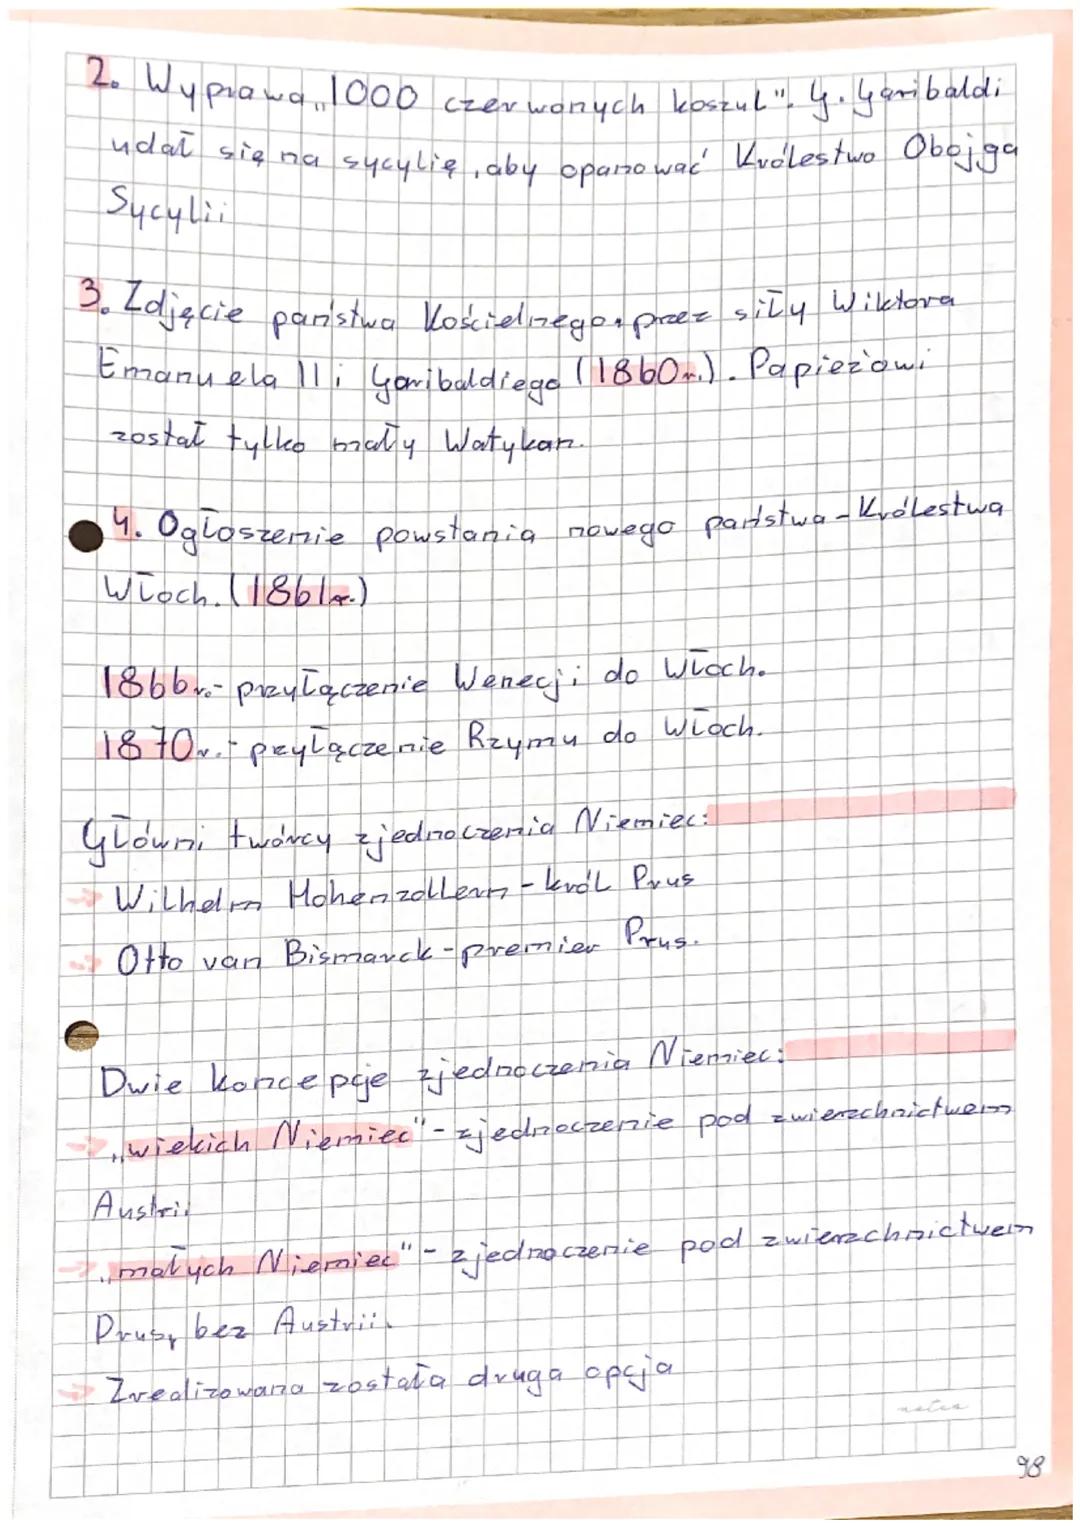 2. Wyprawa „1000 czerwonych koszul". G. Garibaldi
udał się na sycylię, aby opanować Królestwo Obojga
Sycylii
3. Zdjęcie państwa Kościelnego, przez siły Wiktora
Emanuela II i Garibaldiego (1860r.). Papieżowi
został tylko mały Watykan.
4. Ogłoszenie powstania nowego państwa - Królestwa
Włoch. (1861r.)
1866r.- przyłączenie Wenecji do Włoch.
1870r.- przyłączenie Rzymu do Włoch.
Główni twórcy zjednoczenia Niemiec:
→ Wilhelm Hohenzollern - król Prus
→ Otto van Bismarck - premier Prus.
Dwie koncepcje zjednoczenia Niemiec:
→ „wiekich Niemiec" - zjednoczenie pod zwierzchnictwem
Austrii
→ „małych Niemiec" - zjednoczenie pod zwierzchnictwem
Prus, bez Austrii.
→ Zrealizowana została druga opcja
notes
98